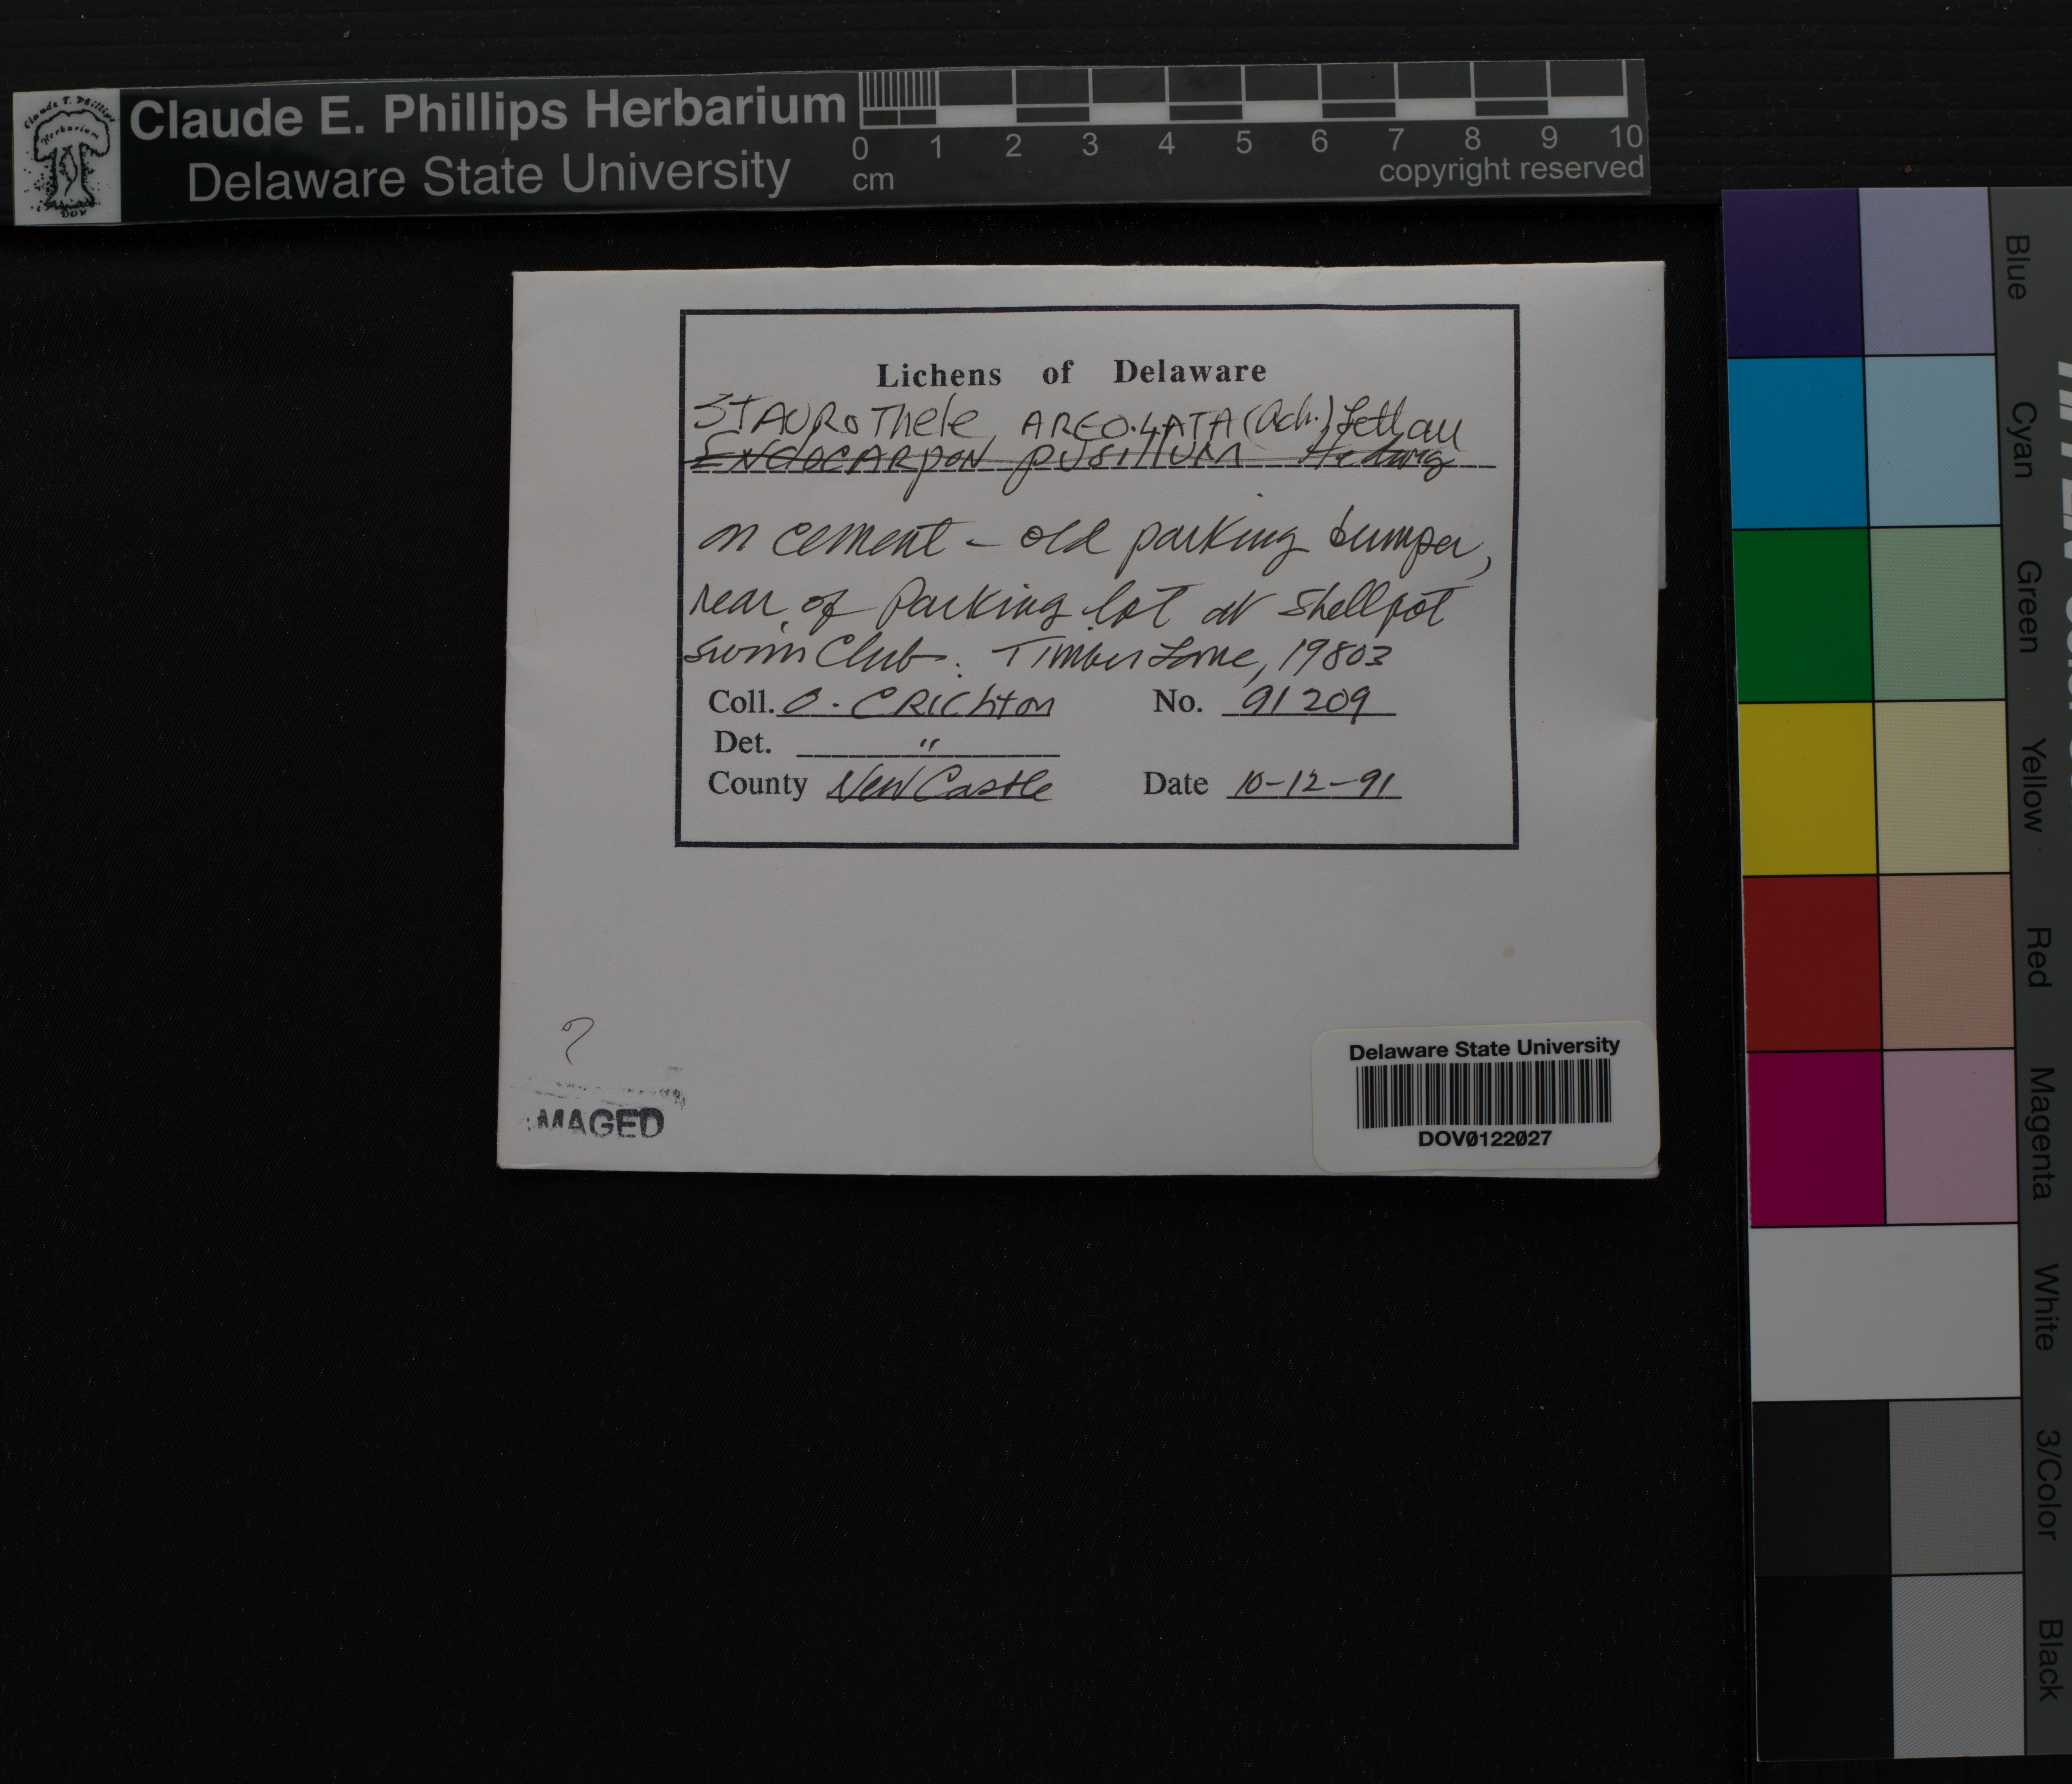 Claude E. Phillips Herbarium
Delaware State University
0 1 2 3 4 5 6 7 8 9 10
cm copyright reserved
Lichens of Delaware
STAUROThele AREOLATA (Ach.) Lettau
ENdOCARpON pUSillUM Hedwig
on cement - old parking bumper,
rear of Parking lot at Shellpot
swim Club. Timber Lane, 19803
Coll. O. CRichton No. 91209
Det. "
County New Castle Date 10-12-91
?
IMAGED
Delaware State University
DOV0122027
Blue
Cyan
Green
Yellow
Red
Magenta
White
3/Color
Black